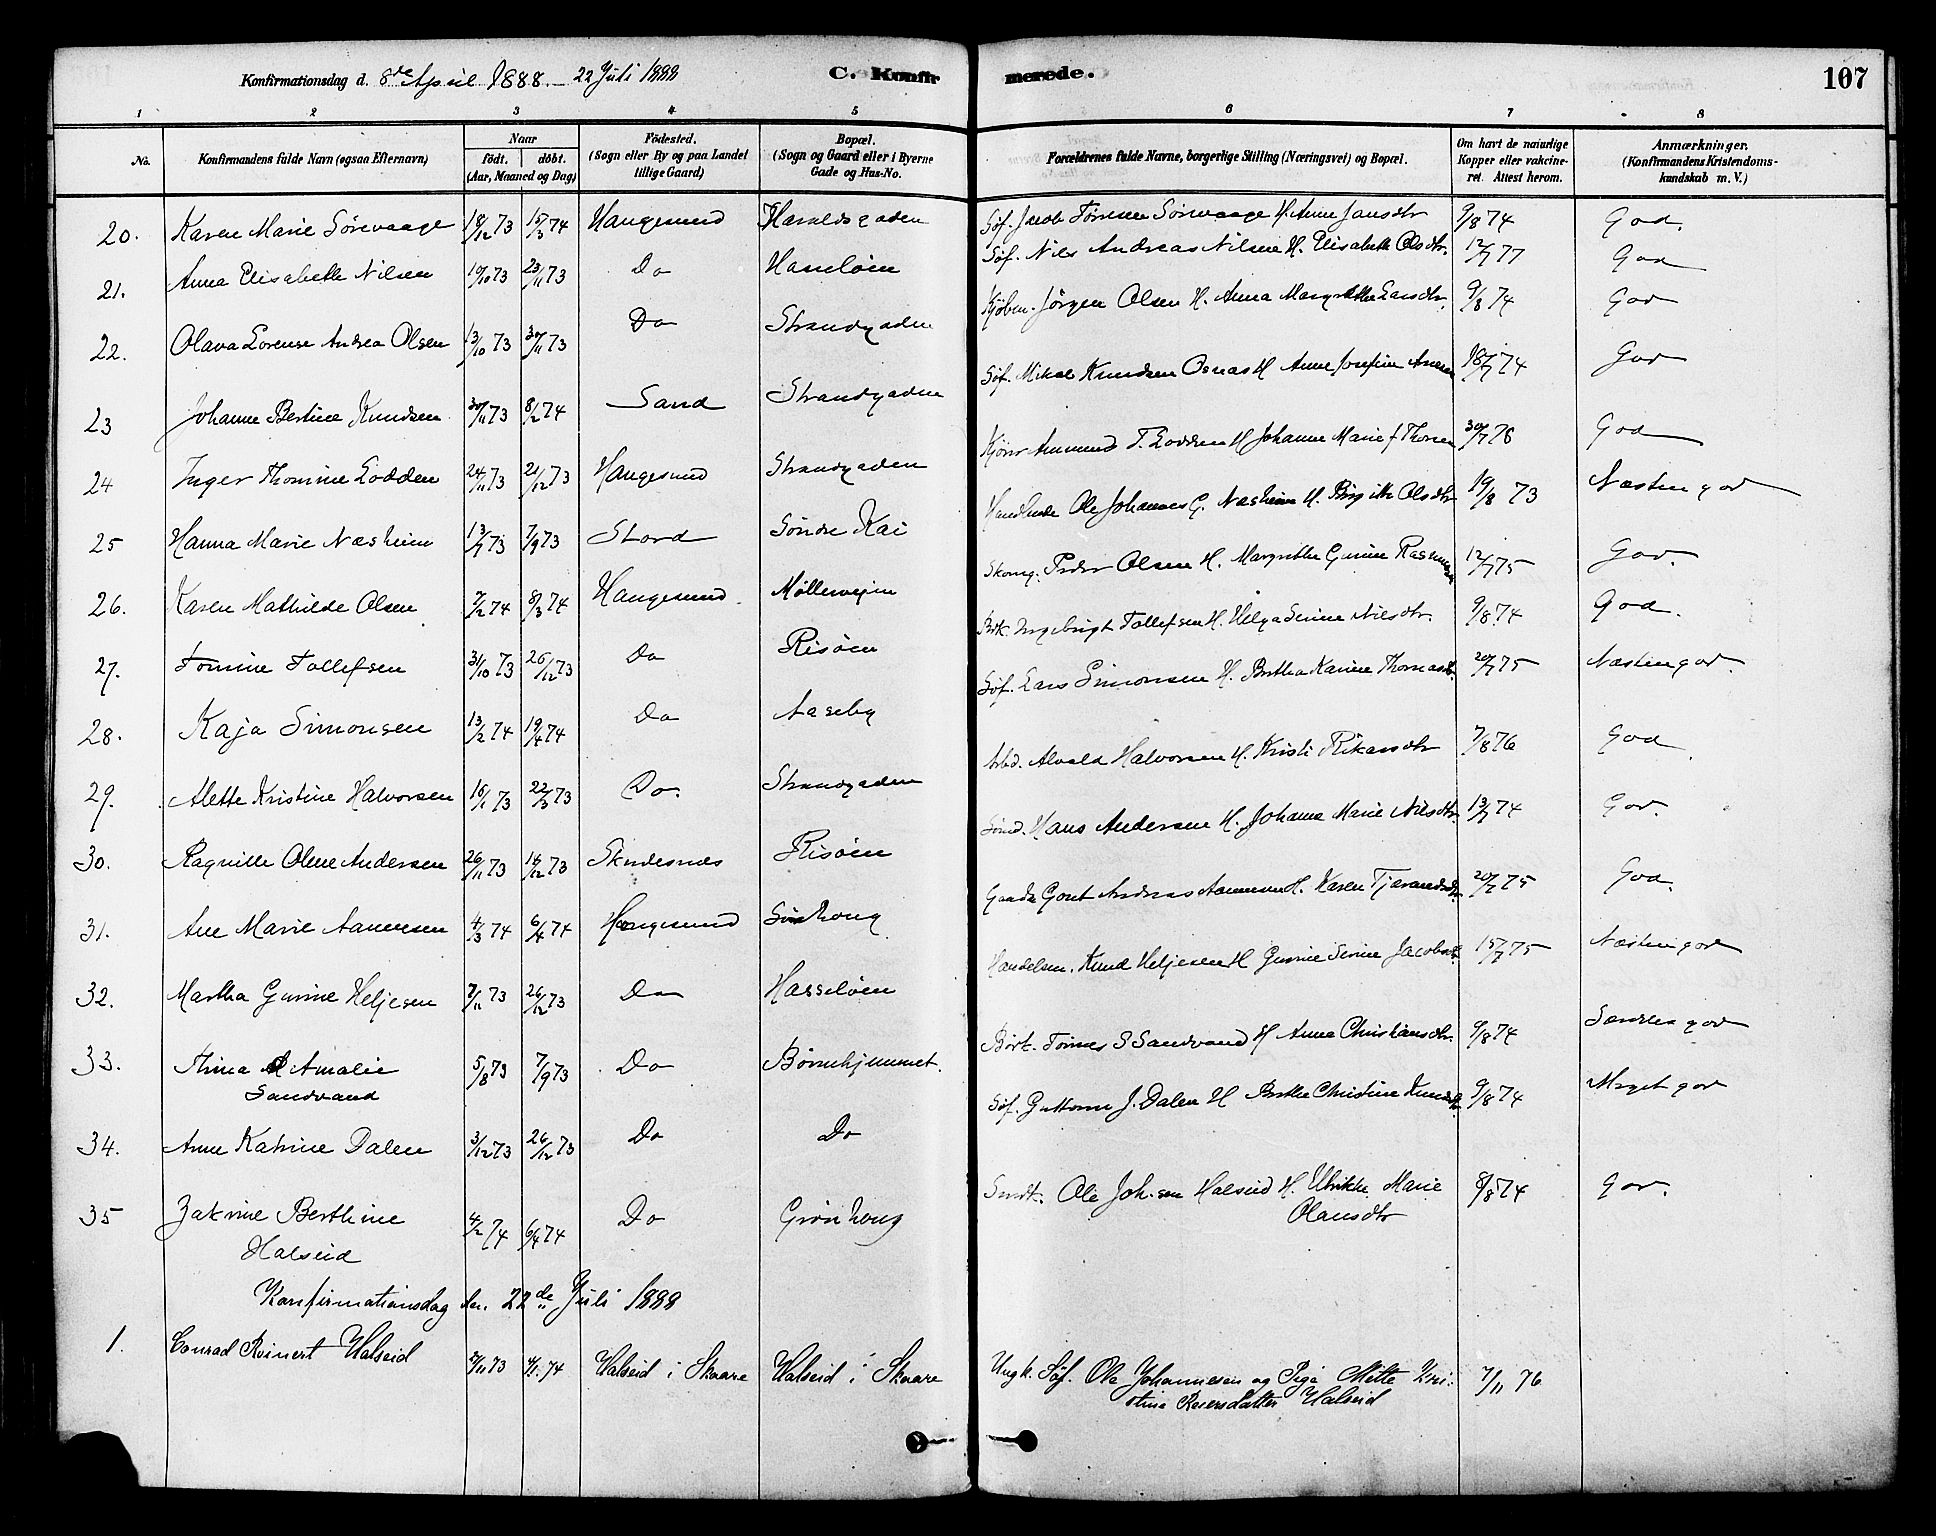 Konfirmationsdag d. 8de April 1888. – 22 Juli 1888
C. Konfirmerede.
107
1 2 3 4 5 6 7 8
No.
Konfirmandens fulde Navn (ogsaa Efternavn)
Naar
födt. döbt.
(Aar, Maaned og Dag)
Födested.
(Sogn eller By og paa Landet
tillige Gaard)
Bopæl.
(Sogn og Gaard eller i Byerne
Gade og Hus-No.
Forældrenes fulde Navne, borgerlige Stilling (Næringsvei) og Bopæl.
Om havt de naturlige
Kopper eller vakcine-
ret. Attest herom.
Anmærkninger.
(Konfirmandens Kristendoms-
kundskab m. V.)
20. Karen Marie Sörevaage 18/12 73 15/3 74 Haugesund Haraldsgaden Söf. Jacob Törresen Sörevaage H. Anne Jansdtr 9/8 74 God.
21. Anna Elisabeth Nilsen 19/10 73 23/11 73 Do Hasselöen Söf. Nils Andreas Nilsen H. Elisabeth Olsdtr. 12/7 77 God
22. Olava Lorense Andrea Olsen 13/10 73 30/11 73 Do Strandgaden Kjöbm. Jörgen Olsen H. Anna Margrethe Larsdtr. 9/8 74 God
23 Johanne Bertine Knudsen 30/11 73 8/2 74 Sand Strandgaden Söf. Mikal Knudsen Osnas H Anne Josefine 18/7 74 God
24 Inger Thomine Lodden 24/11 73 21/12 73 Haugesund Strandgaden Amund T. Lodden H Johanne Marie f Thorsen 30/7 78 God
25 Hanna Marie Næsheim 13/7 73 7/9 73 Stord Söndre Kai Ole Johannes G. Næsheim H. Birgitte Olsdtr 19/8 73 Næsten god
26. Karen Mathilde Olsen 7/2 74 8/3 74 Haugesund. Möllervejen Skomg. Peder Olsen H. Margrethe Gurine 12/7 75 God.
27. Tomine Tollefsen 31/10 73 26/12 73 Do Risöen Ingebrigt Tollefsen H. Helga Serine Nilsdtr. 9/8 74 God.
28. Kaja Simonsen 13/2 74 19/4 74 Do Aaseby Söf. Lars Simonsen H. Bertha Karine Thomasdtr. 20/7 75 Næsten god.
29. Alette Kristine Halvorsen 16/1 73 22/3 73 Do. Strandgaden Arbd. Alvald Halvorsen H. Kristi Rikardsdtr 7/8 76 God
30. Ragnille Oline Andersen 26/11 73 14/12 73 Skudesnes Risöen Hans Andersen H. Johanne Marie Nilsdtr. 13/7 74 God.
31. Ane Marie Aamunsen 4/3 74 6/4 74 Haugesund Andreas Aamunsen H. Karen 20/7 75 God.
32. Martha Gurine Heljesen 7/11 73 26/12 73 Do Hasselöen Handelsm. Knud Heljesen H Gurine Serine Jacobsdtr. 15/7 75 Næsten god
33. Thina Amalie Do Börnehjemmet. S Sandvand H Anna Christiansdtr. 9/8 74
Sandvand 5/8 73 7/9 73
34. Anne Katrine Dalen 3/12 73 26/12 73 Do Do Söf. Guttorm J. Dalen H Berthe Christine 9/8 74 Meget god
35 Zakrine Berthine 4/2 74 6/4 74 Do Grönhaug Ole Joh.sen Halseid H. Ulrikke Marie 8/8 74 God.
Halseid Olausdtr
Konfirmationsdag den. 22de Juli 1888
1. Conrad Reinert Halseid 7/11 73 4/1 74 Halseid i Skaare Halseid i Skaare Ungk. Söf. Ole Johannesen og Pige Mette Kri- 7/11 76
stine Halseid